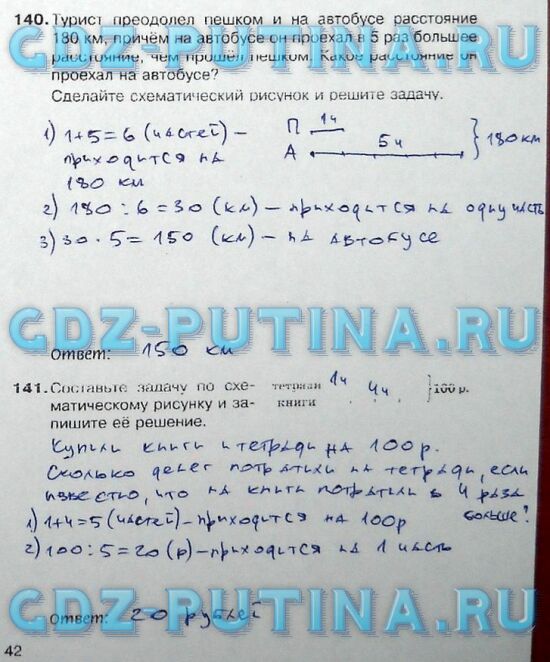 140. Турист преодолел пешком и на автобусе расстояние
180 км, причём на автобусе он проехал в 5 раз большее
расстояние, чем прошёл пешком. Какое расстояние он
проехал на автобусе?
Сделайте схематический рисунок и решите задачу.
1) 1+5=6 (частей) –
приходится на
180 км
П 1ч
А 5ч
180 км
2) 180 : 6 = 30 (км) – приходится на одну часть
3) 30 · 5 = 150 (км) – на автобусе
GDZ-PUTINA.RU
GDZ-PUTINA.RU
Ответ: 150 км
141. Составьте задачу по схе-
матическому рисунку и за-
пишите её решение.
тетради 1ч
книги 4ч
100 р.
Купили книги и тетради на 100 р.
Сколько денег потратили на тетради, если
известно, что на книги потратили в 4 раза
больше?
1) 1+4=5 (частей) – приходится на 100р
2) 100 : 5 = 20 (р) – приходится на 1 часть
GDZ-PUTINA.RU
Ответ: 20 рублей
42